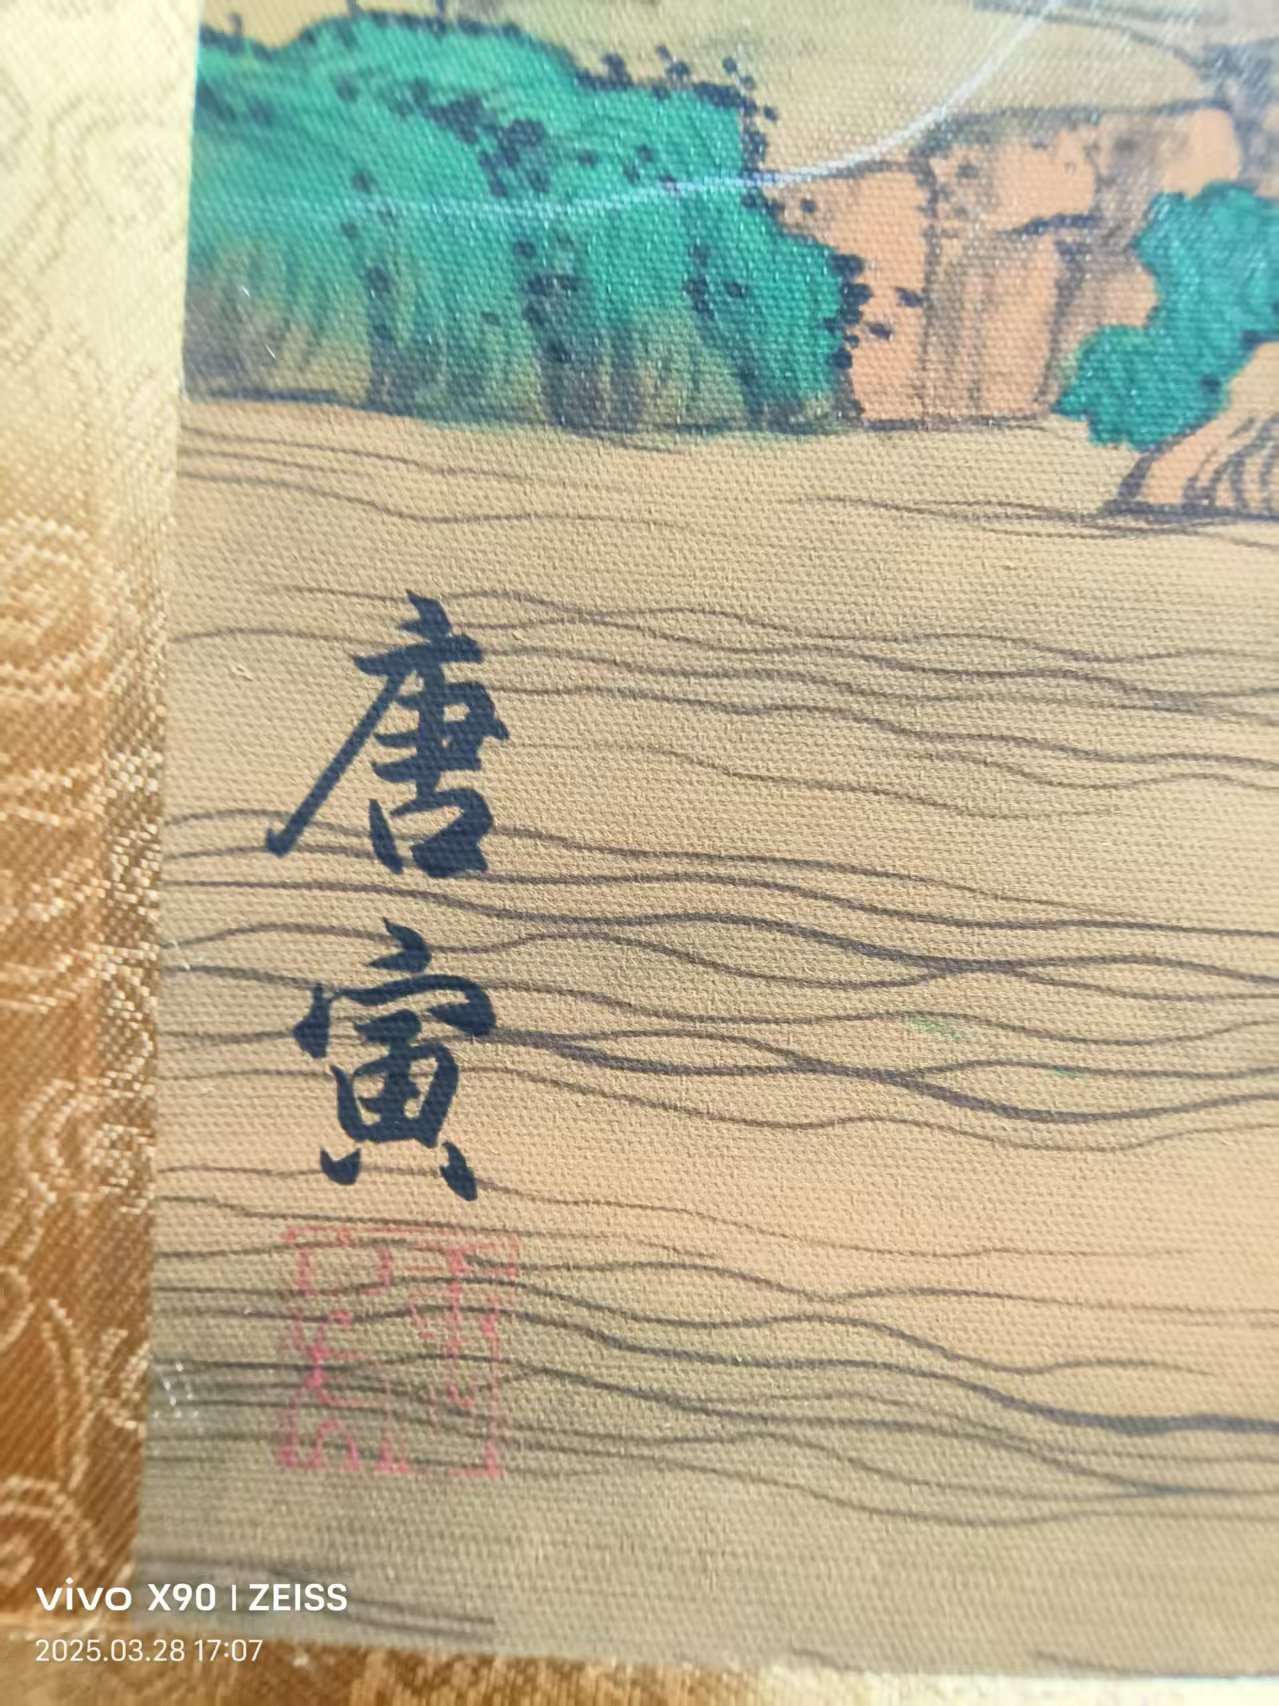 唐寅
vivo X90 | ZEISS
2025.03.28 17:07